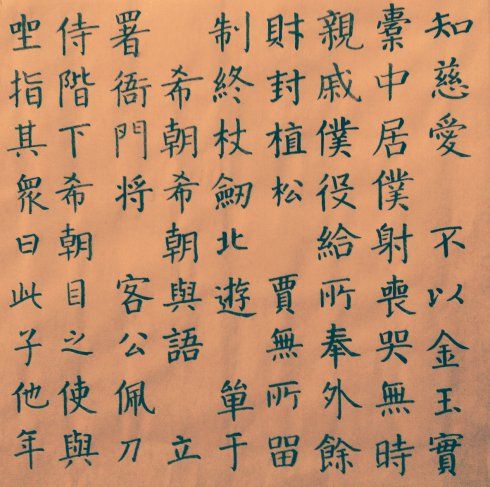 知慈愛 不以金玉實
橐中居僕射喪哭無時
親戚僕役給所奉外餘
財封植松 賈無所留
制終杖劒北遊 單于
希朝希朝與語 立
署衙門將 客公佩刀
侍階下希朝目之使與
坐指其衆曰此子他年